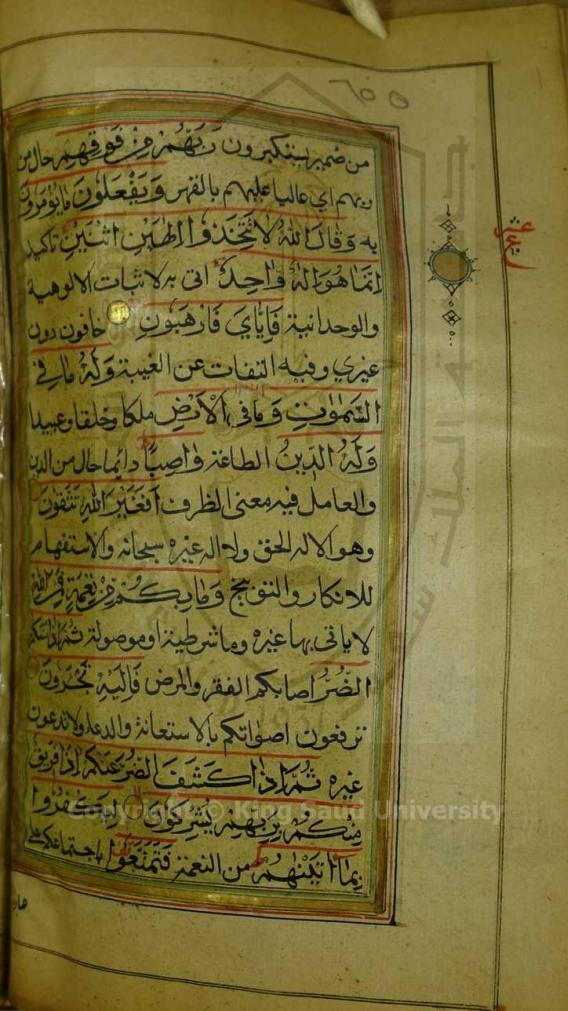 ٦٥٥
من ضمير يستكبرون رَبَّهُمْ مِنْ فَوْقِهِمْ حال من
ربهم اي عاليا عليهم بالقهر وَيَفْعَلُونَ مَا يُؤْمَرُونَ
به وَقَالَ اللّٰهُ لَا تَتَّخِذُوا إِلٰهَيْنِ اثْنَيْنِ تاكيد
إِنَّمَا هُوَ إِلٰهٌ وَاحِدٌ اتى به لاثبات الالوهية
والوحدانية فَإِيَّايَ فَارْهَبُونِ خافون دون
غيري وفيه التفات عن الغيبة وَلَهُ مَا فِي
السَّمٰوٰتِ وَمَا فِي الْأَرْضِ ملكا وخلقا وعبيدا
وَلَهُ الدِّينُ الطاعة وَاصِبًا دائما حال من الدين
والعامل فيه معنى الظرف أَفَغَيْرَ اللّٰهِ تَتَّقُونَ
وهو الاله الحق ولا اله غيره سبحانه والاستفهام
للانكار والتوبيخ وَمَا بِكُمْ مِنْ نِعْمَةٍ فَمِنَ اللّٰهِ
لا ياتى بها غيره وما شرطية او موصولة ثُمَّ إِذَا مَسَّكُمُ
الضُّرُّ اصابكم الفقر والمرض فَإِلَيْهِ تَجْـَٔرُونَ
ترفعون اصواتكم بالاستعانة والدعاء ولا تدعون
غيره ثُمَّ إِذَا كَشَفَ الضُّرَّ عَنْكُمْ إِذَا فَرِيقٌ
مِنْكُمْ بِرَبِّهِمْ يُشْرِكُونَ لِيَكْفُرُوا
بِمَا اٰتَيْنٰهُمْ من النعمة فَتَمَتَّعُوا باجتماعكم على
Copyright © King Saud University